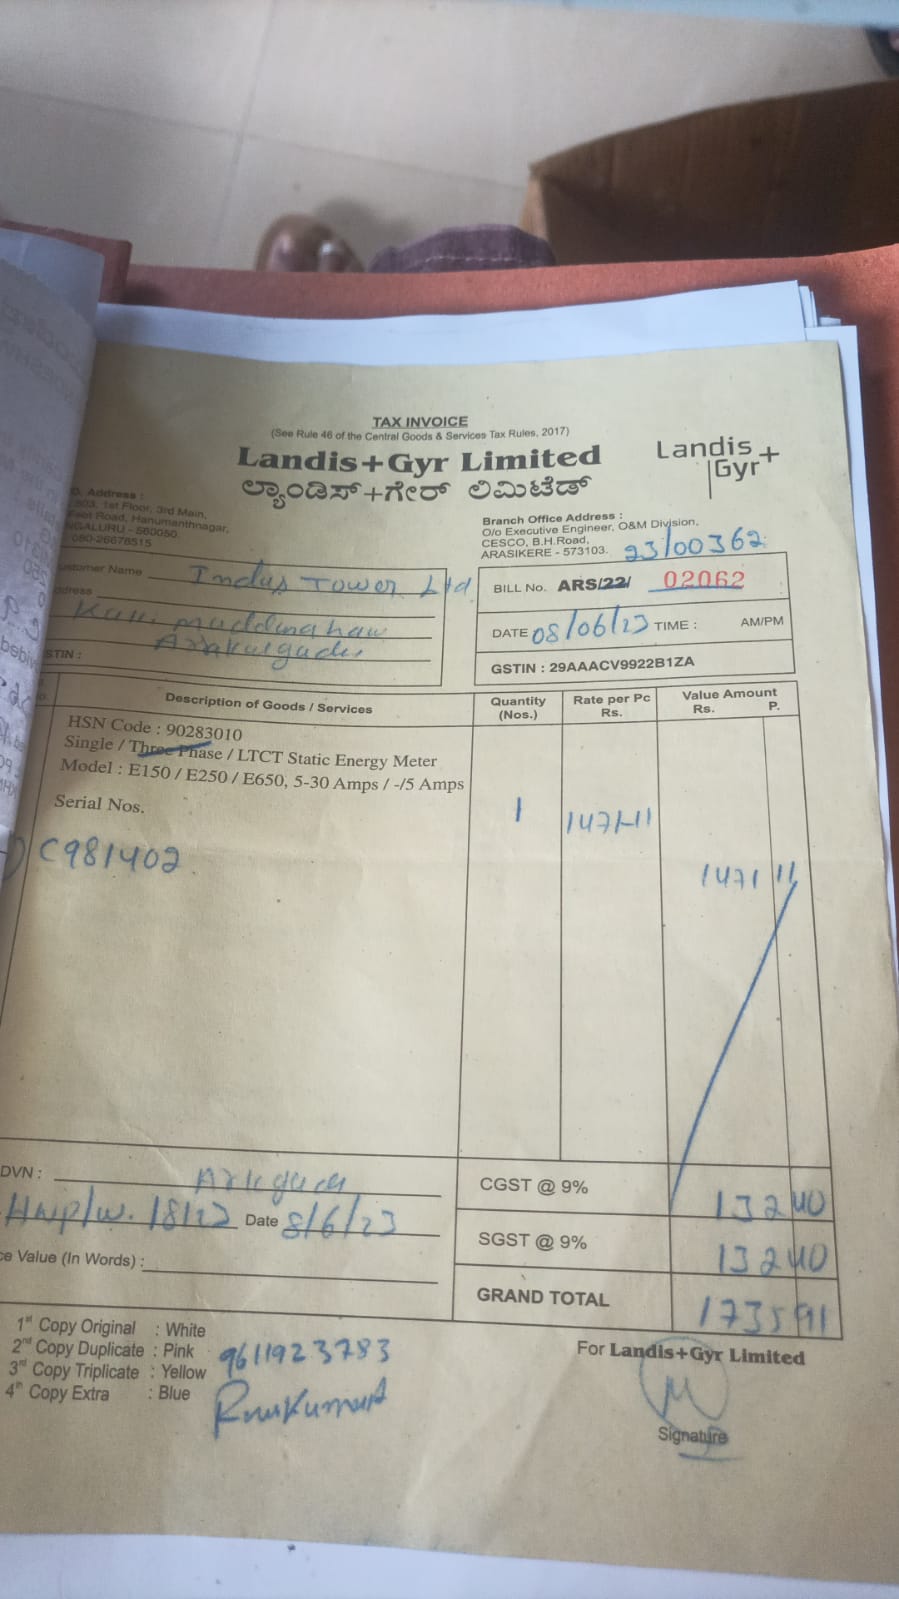 TAX INVOICE
(See Rule 46 of the Central Goods & Services Tax Rules, 2017)
Landis+Gyr Limited
ಲ್ಯಾಂಡಿಸ್+ಗೇರ್ ಲಿಮಿಟೆಡ್
Landis
Gyr+
Address :
503, 1st Floor, 3rd Main,
Feet Road, Hanumanthnagar,
NGALURU - 560050.
080-26678515
Branch Office Address :
O/o Executive Engineer, O&M Division,
CESCO, B.H.Road,
ARASIKERE - 573103.
23/00362
ustomer Name Indus Tower Ltd
ddress
STIN :
BILL No. ARS/22/ 02062
DATE 08/06/23 TIME : AM/PM
GSTIN : 29AAACV9922B1ZA
Description of Goods / Services Quantity (Nos.) Rate per Pc Rs. Value Amount Rs. P.
HSN Code : 90283010
Single / Three Phase / LTCT Static Energy Meter
Model : E150 / E250 / E650, 5-30 Amps / -/5 Amps
Serial Nos. 1 1471-11
C981402 1471 11
DVN :
18/22 Date 8/6/23
ce Value (In Words) :
CGST @ 9% 132 40
SGST @ 9% 132 40
GRAND TOTAL 1735 91
1st Copy Original : White
2nd Copy Duplicate : Pink
3rd Copy Triplicate : Yellow
4th Copy Extra : Blue
9611923783
For Landis+Gyr Limited
Signature